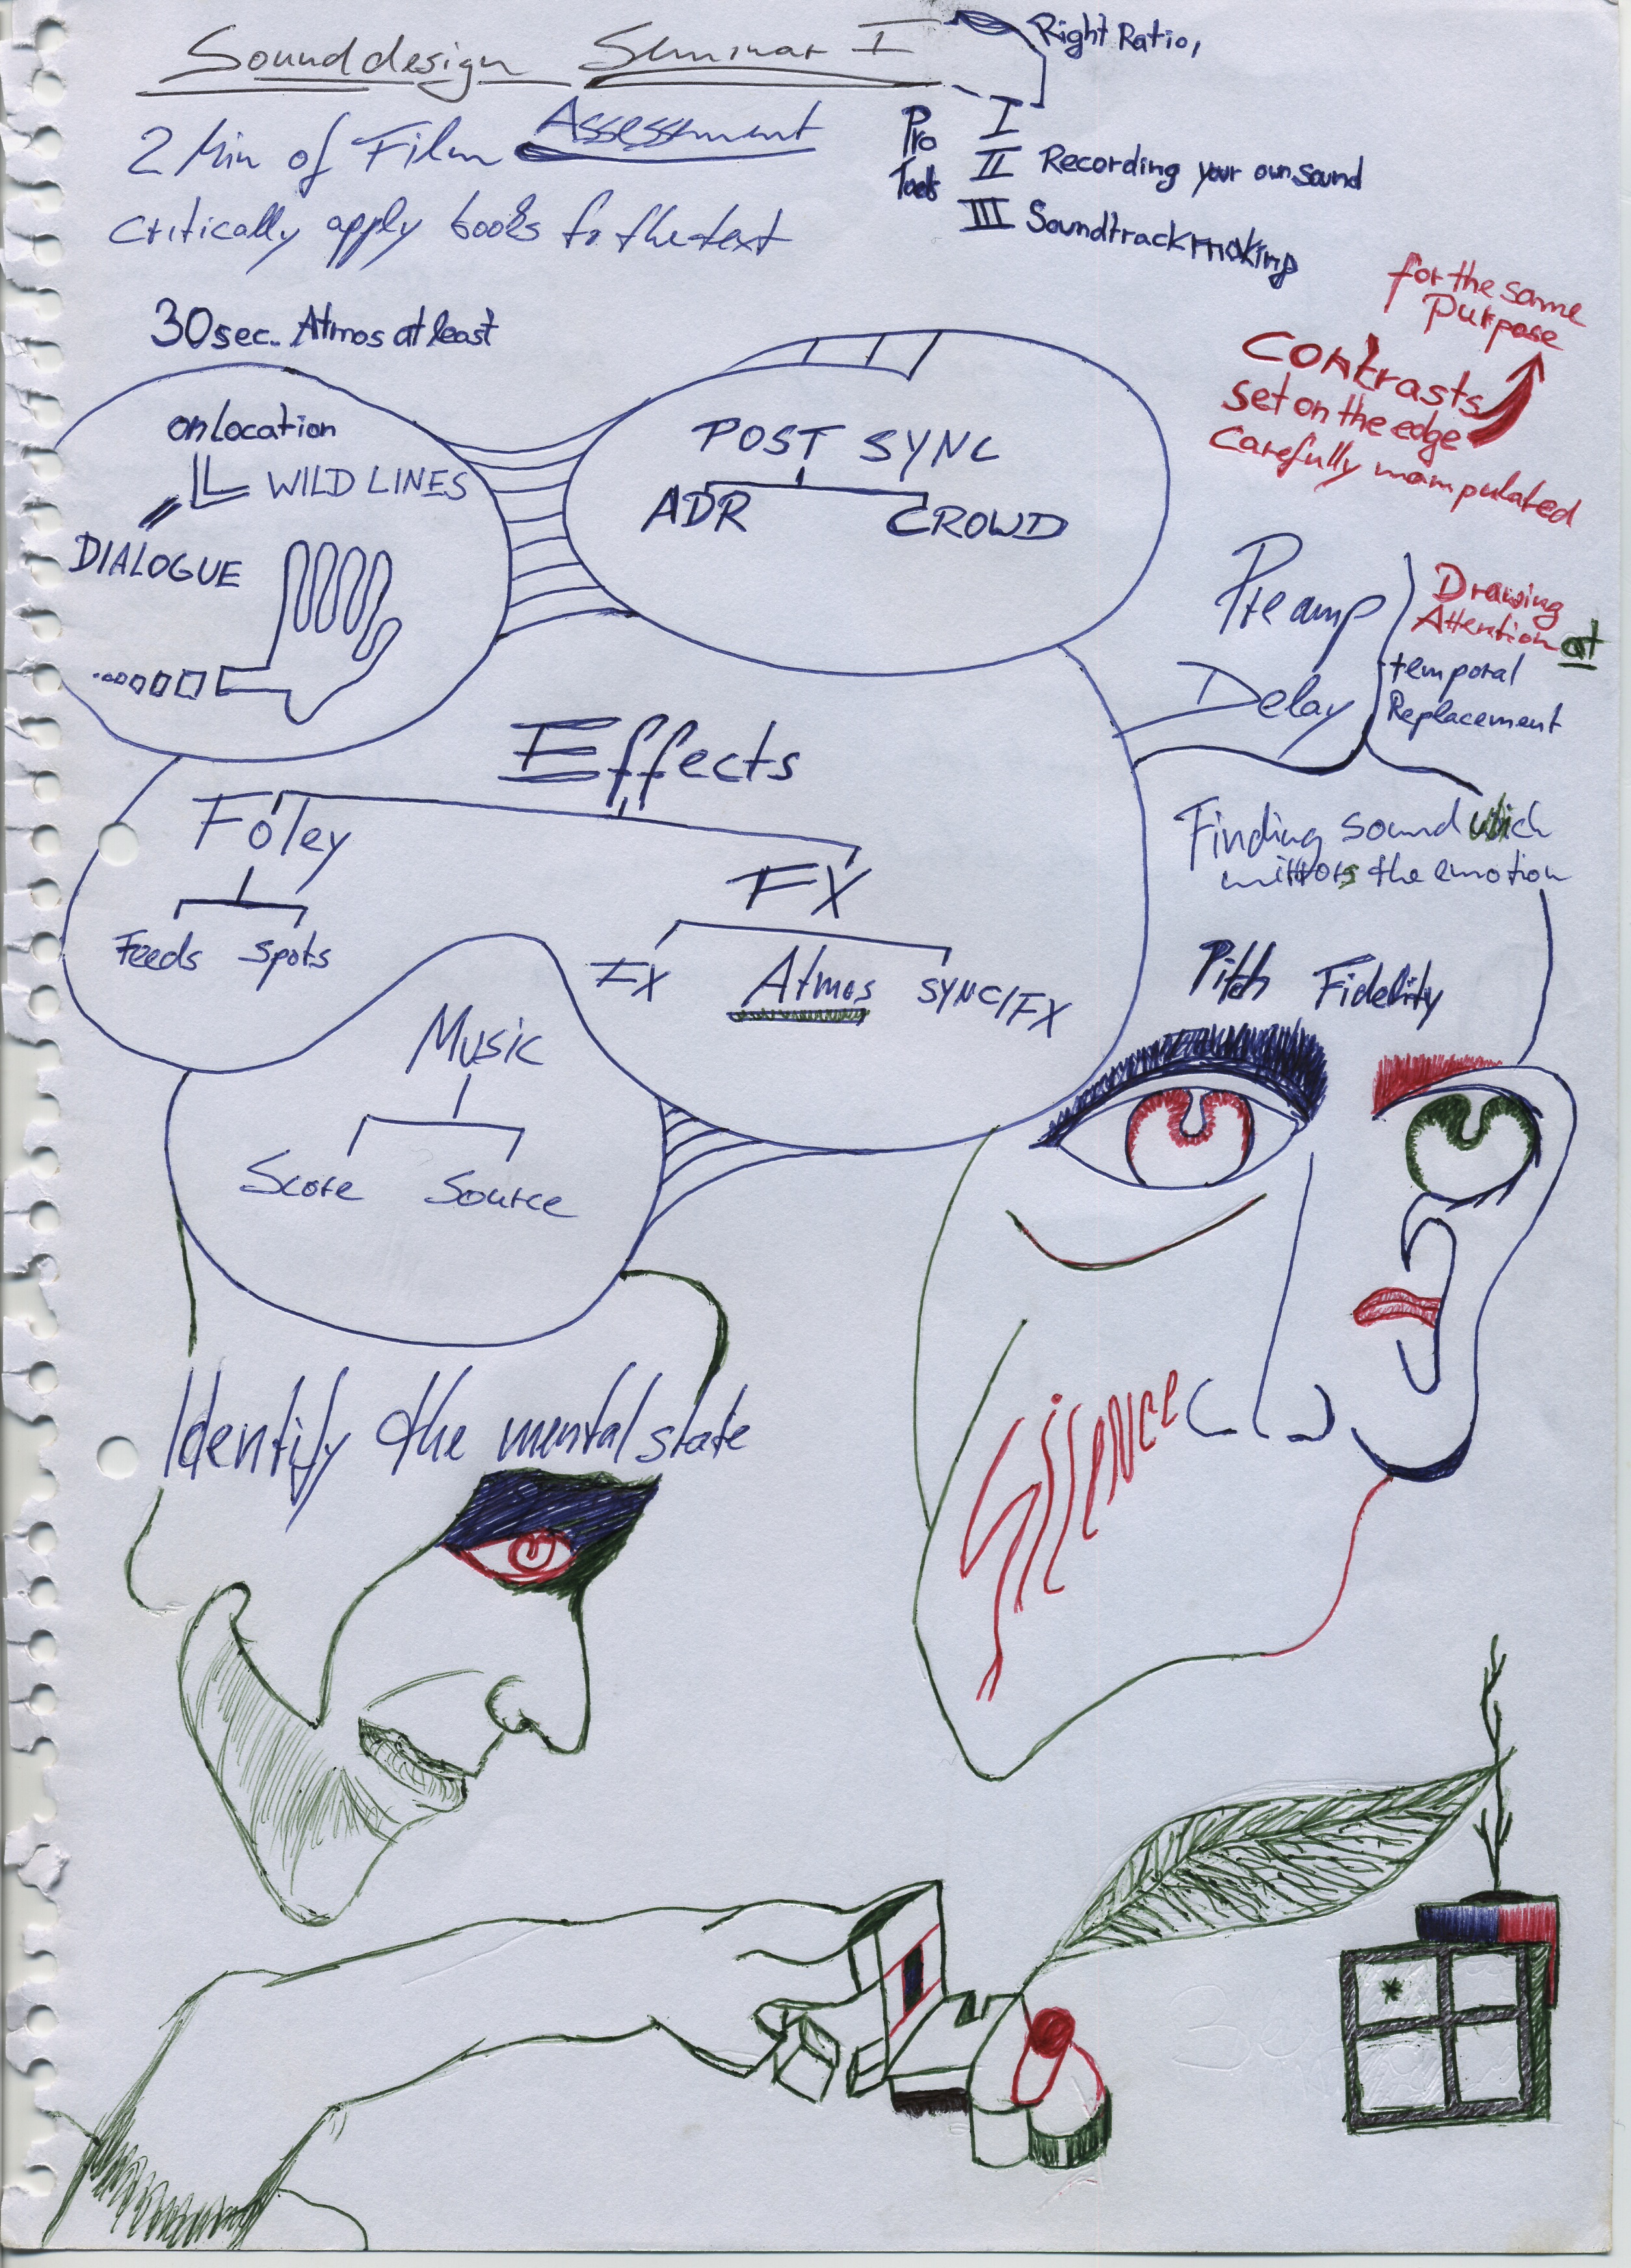 Sounddesign Seminar I
Right Ratio,
2 Min of Film Assessment
critically apply books to the text
Pro Tools
I
II Recording your own sound
III Soundtrackmaking
30sec. Atmos at least
for the same
Purpose
Contrasts
set on the edge
carefully manipulated
on location
WILD LINES
DIALOGUE
POST SYNC
ADR CROWD
Pre amp
Delay
Drawing
Attention at
temporal
Replacement
Effects
Foley
Feeds Spots
FX
FX Atmos SYNC/FX
Finding sound which
mirrors the emotion
Pitch Fidelity
Music
Score Source
Identify the mental state
Silence